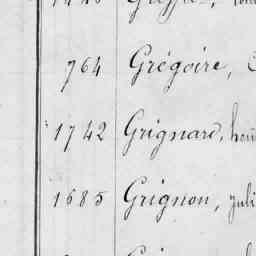 764 Grégoire,
1742 Grignard,
1685 Grignon, Juli